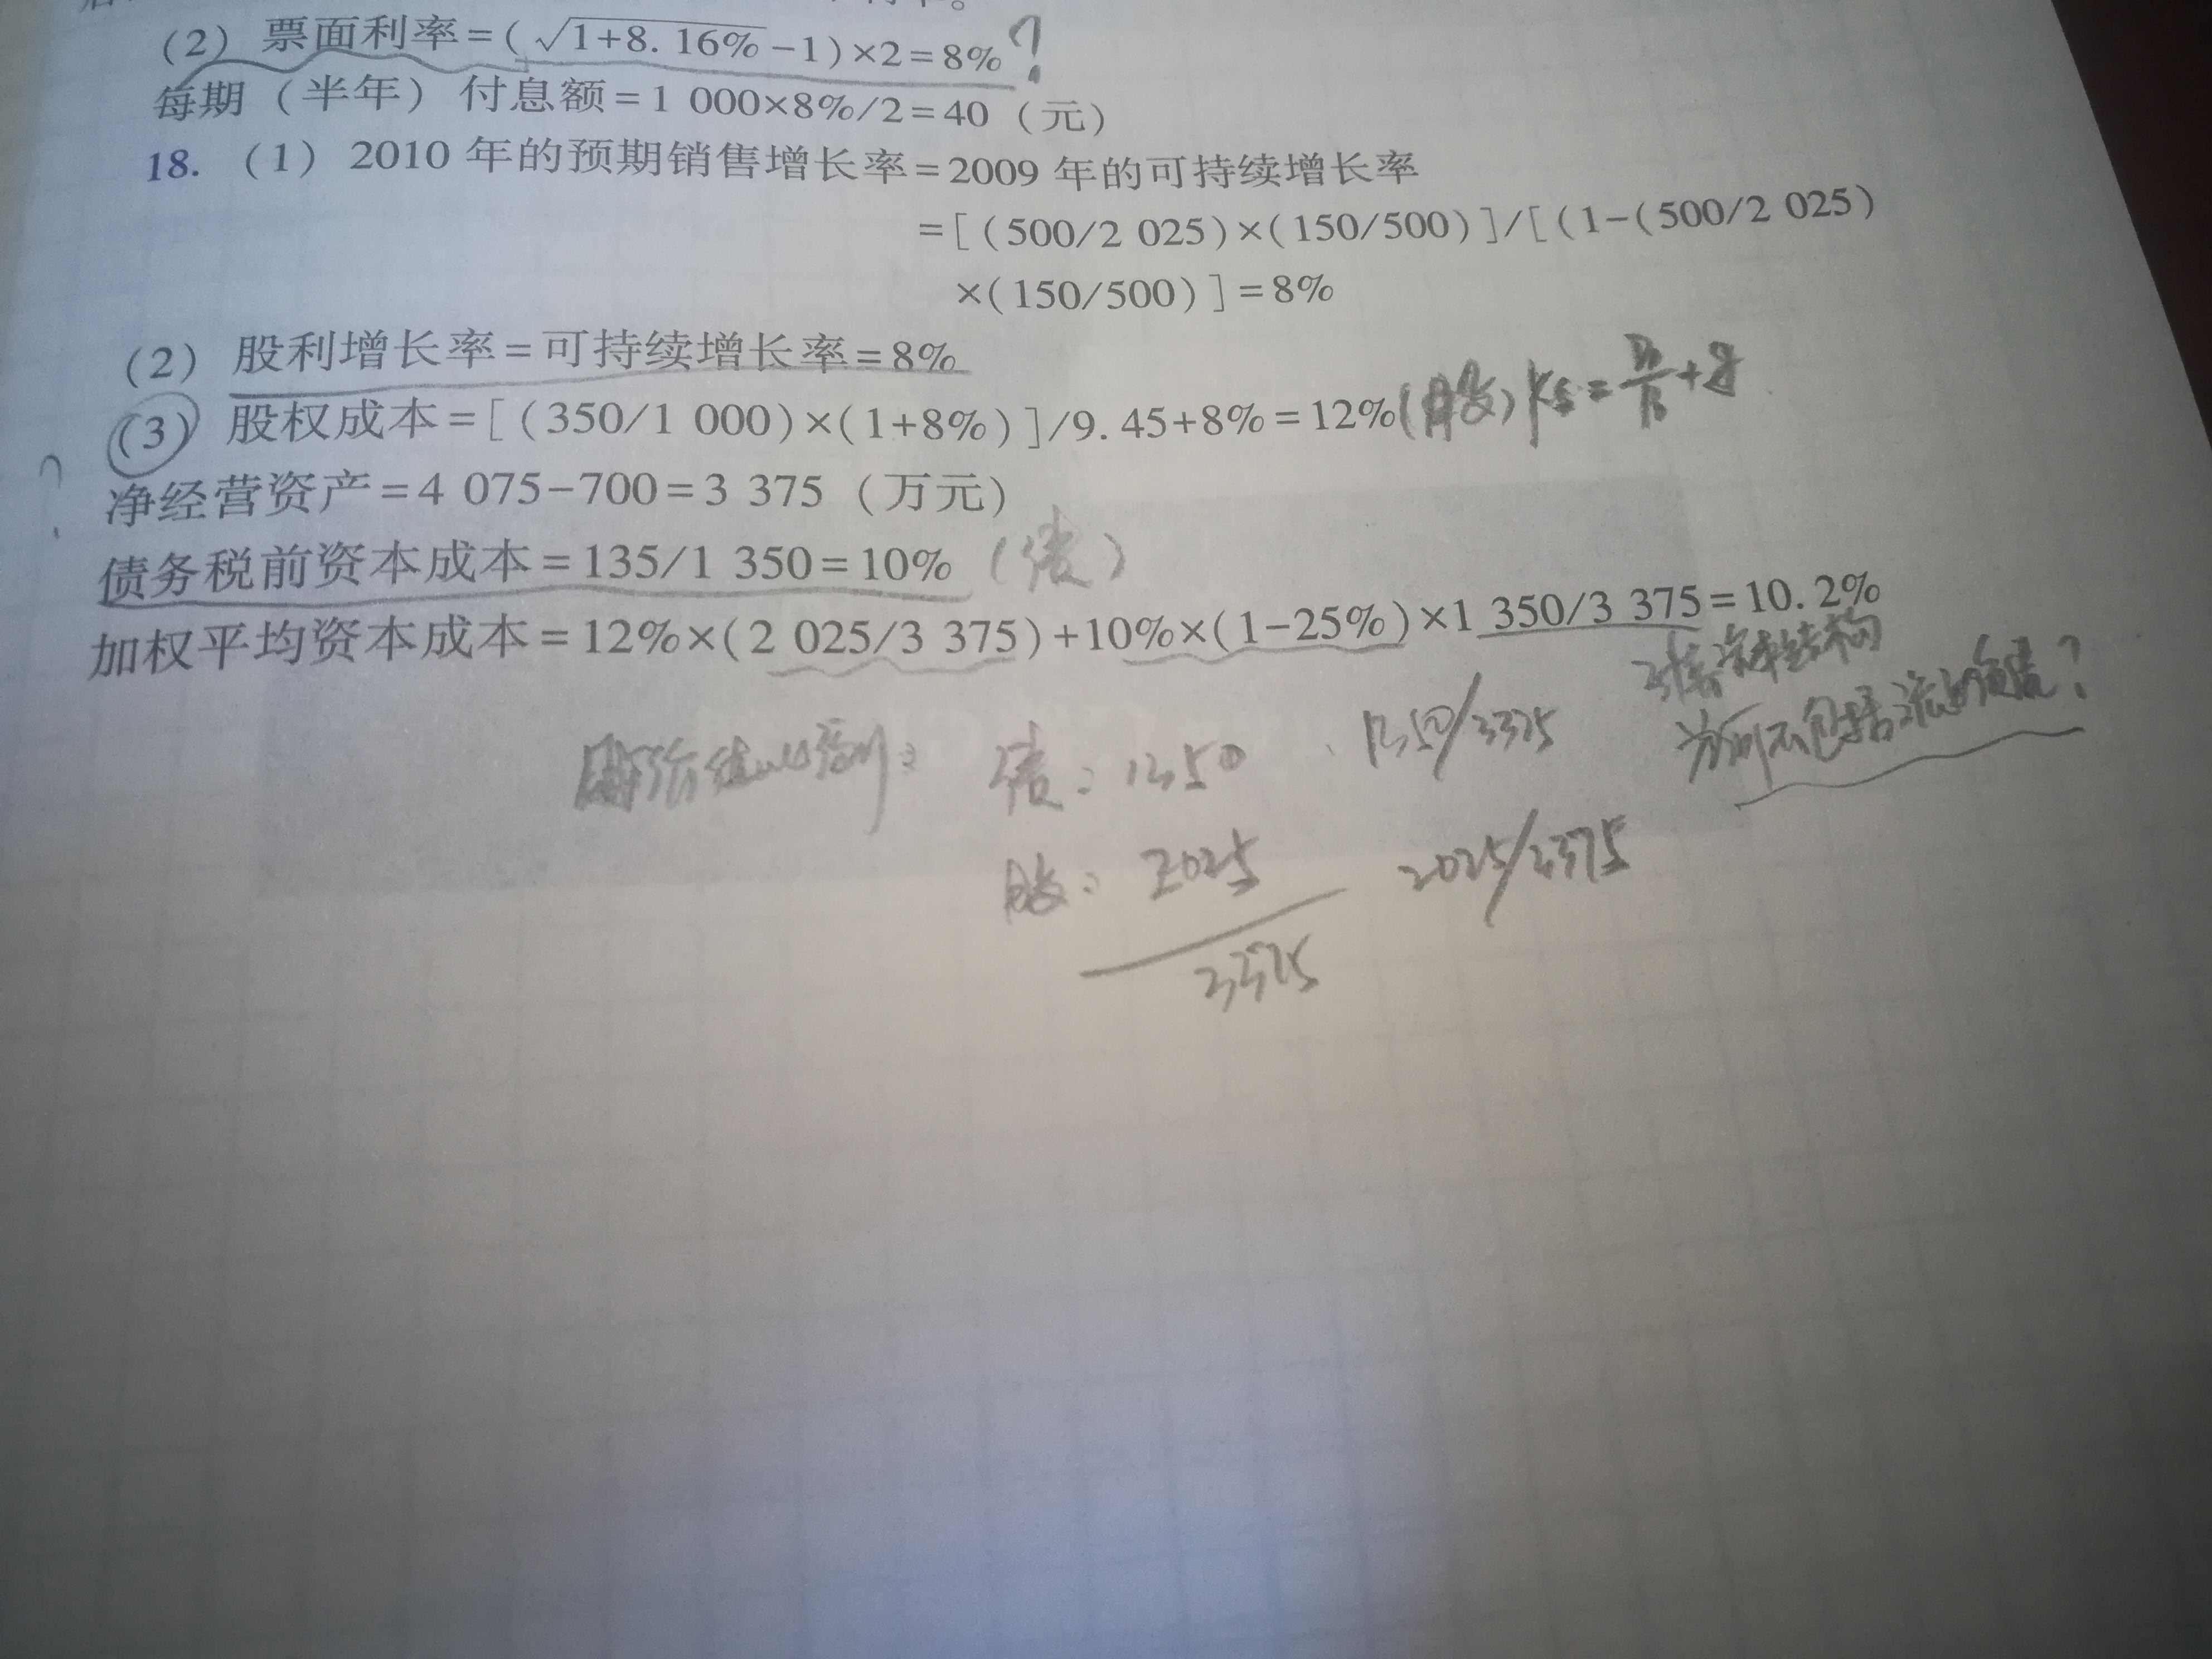 (2) 票面利率=(√1+8.16%-1)×2=8% ?
每期（半年）付息额=1 000×8%/2=40（元）
18.（1）2010 年的预期销售增长率=2009 年的可持续增长率
=[(500/2 025)×(150/500)]/[(1-(500/2 025)
×(150/500)]=8%
(2) 股利增长率=可持续增长率=8%
(3) 股权成本=[(350/1 000)×(1+8%)]/9.45+8%=12%(股) Ks=
?
净经营资产=4 075-700=3 375（万元）
债务税前资本成本=135/1 350=10% (债)
加权平均资本成本=12%×(2 025/3 375)+10%×(1-25%)×1 350/3 375=10.2%
资本结构
为何不包括流动负债?
债: 1350 1350/3375
股: 2025 2025/3375
3375